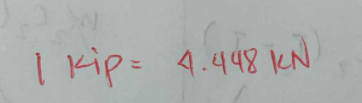 1 Kip = 4.448 KN